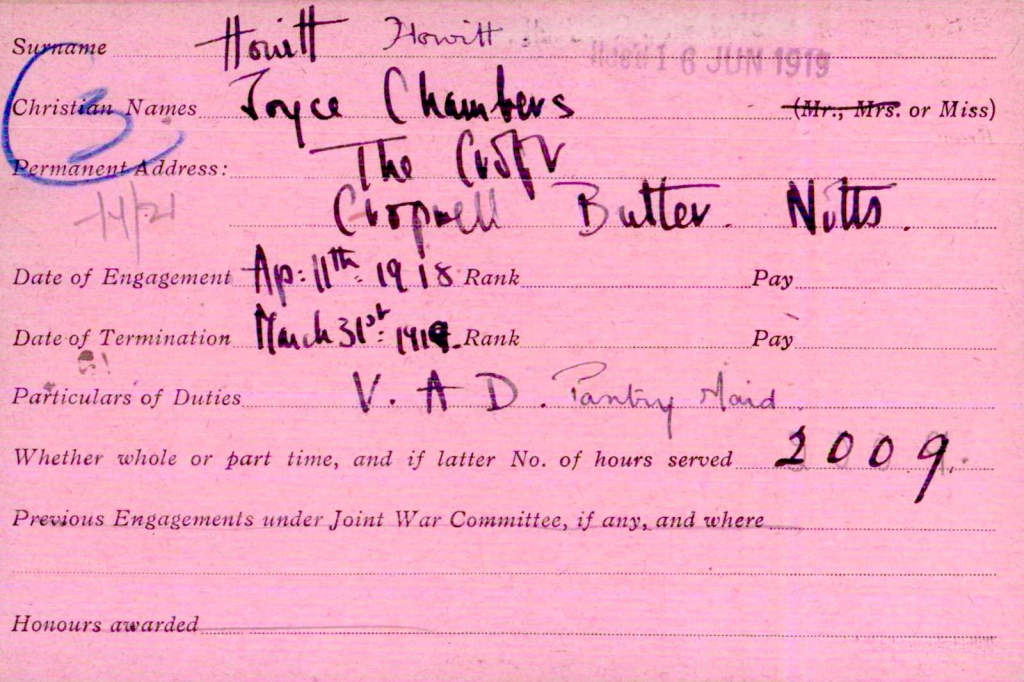 Surname Howitt Howitt.
16 JUN 1919
Christian Names Joyce Chambers (Mr., Mrs. or Miss)
3
Permanent Address: The Croft
Cropwell Butter. Notts.
Date of Engagement Ap: 11th: 1918 Rank Pay
Date of Termination March 31st: 1919. Rank Pay
Particulars of Duties V. A D. Pantry Maid.
Whether whole or part time, and if latter No. of hours served 2009.
Previous Engagements under Joint War Committee, if any, and where
Honours awarded